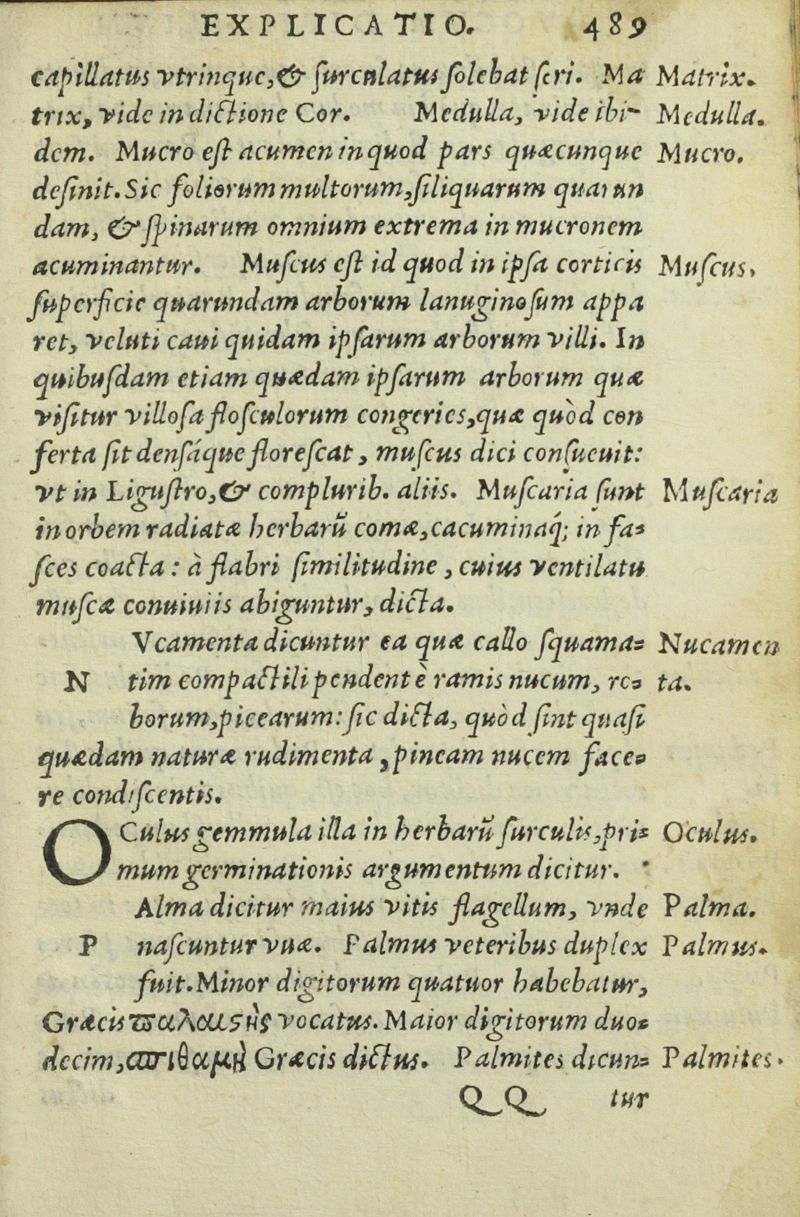 EXPLICATIO. 489
capillatus vtrinque,& ſurculatus ſolebat ſeri. Ma Matrix.
trix, vide in dictione Cor. Medulla, vide ibi- Medulla.
dem. Mucro eſt acumen in quod pars quæcunque Mucro.
deſinit. Sic foliorum multorum, ſiliquarum quarun
dam, & ſpinarum omnium extrema in mucronem
acuminantur. Muſcus eſt id quod in ipſa corticis Muſcus,
ſuperficie quarundam arborum lanuginoſum appa
ret, veluti caui quidam ipſarum arborum villi. In
quibuſdam etiam quædam ipſarum arborum quæ
viſitur villoſa floſculorum congeries, quæ quòd con
ferta ſit denſáque floreſcat, muſcus dici conſueuit:
vt in Liguſtro, & complurib. aliis. Muſcaria ſunt Muſcaria
in orbem radiatæ herbarũ comæ, cacuminaq́; in fa-
ſces coacta: à flabri ſimilitudine, cuius ventilatu
muſcæ conuiuiis abiguntur, dicta.
Vcamenta dicuntur ea quæ callo ſquama- Nucamen
N tim compactili pendent è ramis nucum, ro- ta.
borum, picearum: ſic dicta, quòd ſint quaſi
quædam naturæ rudimenta, pineam nucem face-
re condiſcentis.
OCulus gemmula illa in herbarũ ſurculis, pri- Oculus.
mum germinationis argumentum dicitur.
Alma dicitur maius vitis flagellum, vnde Palma.
P naſcuntur vuæ. Palmus veteribus duplex Palmus.
fuit. Minor digitorum quatuor habebatur,
Græcis παλαιστὴς vocatus. Maior digitorum duo-
decim, σπιθαμὴ Græcis dictus. Palmites dicun- Palmites.
QQ tur